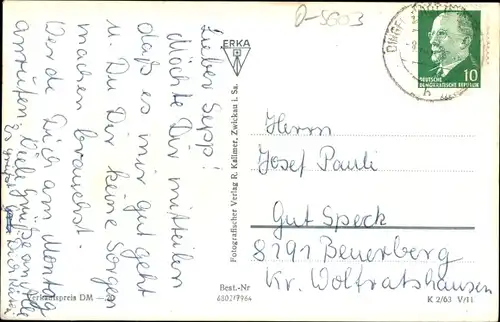 D-5603
Lieber Sepp!
Möchte Dir mitteilen
daß es mir gut geht
u. Du Dir keine Sorgen
machen brauchst.
Werde Dich am Montag
anrufen. Viele Grüße an alle
Es grüßt
Dich
ERKA
Fotografischer Verlag R. Kallmer, Zwickau i. Sa.
DINGEL
10
DEUTSCHE
DEMOKRATISCHE REPUBLIK
Herrn
Josef Pauli
Gut Speck
8191 Beuerberg
Kr. Wolfratshausen
Verkaufspreis DM
Best.-Nr
K 2/63 V/11